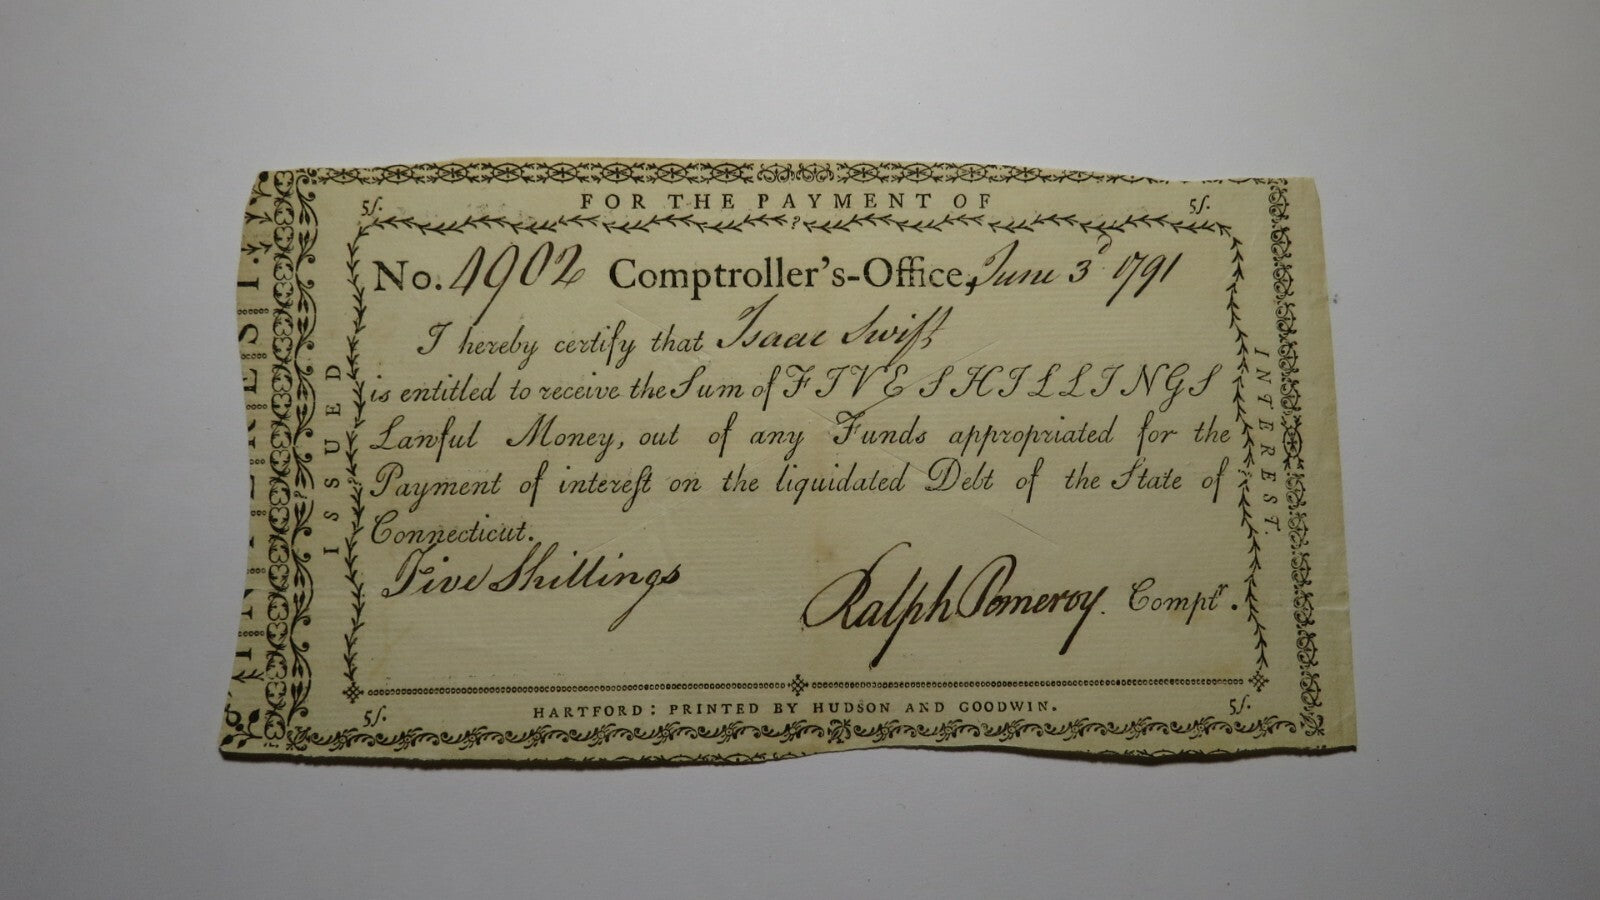 FOR THE PAYMENT OF
5ſ. 5ſ.
No. 4902 Comptroller's-Office, June 3d 1791
I hereby certify that Isaac Swift
is entitled to receive the Sum of FIVE SHILLINGS
Lawful Money, out of any Funds appropriated for the
Payment of intereſt on the liquidated Debt of the State of
Connecticut.
Five Shillings
Ralph Pomeroy. Comptr.
HARTFORD: PRINTED BY HUDSON AND GOODWIN.
5ſ. 5ſ.
ISSUED
INTEREST.
INTEREST.